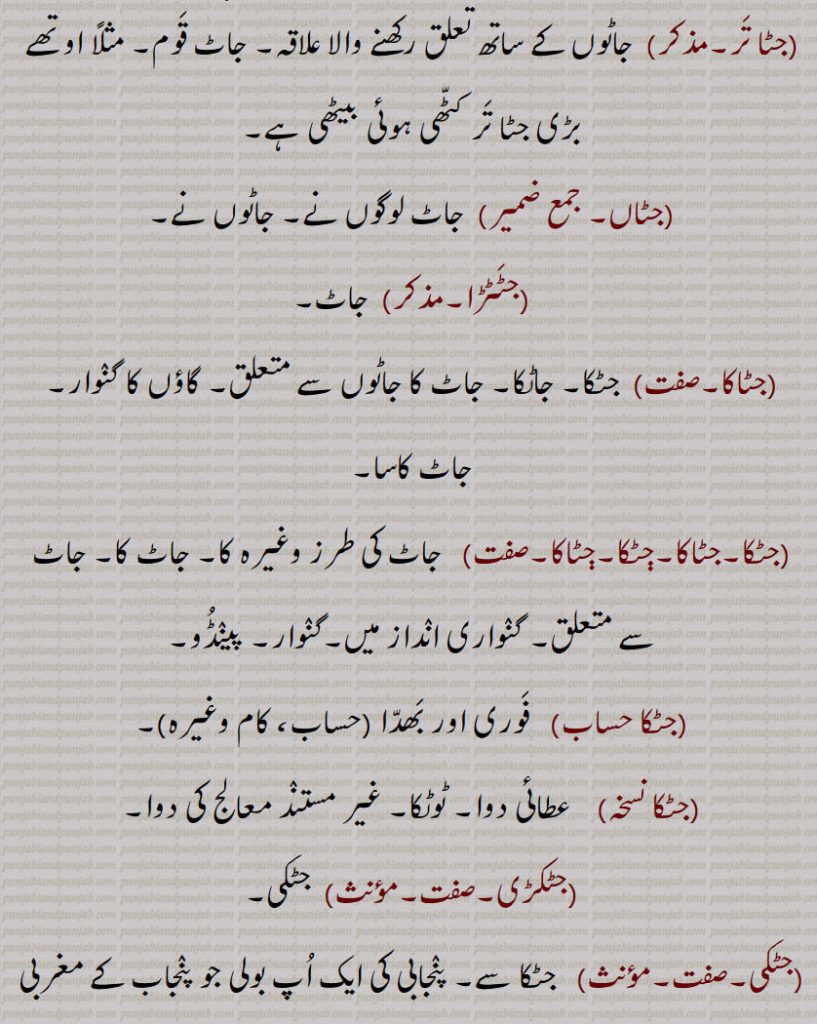 (جٹا تَر۔مذکر) جاٹوں کے ساتھ تعلق رکھنے والا علاقہ۔ جاٹ قَوم۔ مثلاً اوتھے
بڑی جٹا تَر کٹھّی ہوئی بیٹھی ہے۔
(جٹاں۔ جمع ضمیر) جاٹ لوگوں نے۔ جاٹوں نے۔
(جٹَٹڑا۔مذکر) جاٹ۔
(جٹاکا۔صفت) جٹکا۔ جاٹکا۔ جاٹ کا جاٹوں سے متعلق۔ گاؤں کا گنْوار۔
جاٹ کاسا۔
(جٹکا۔جٹاکا۔جٕٹکا۔جٕٹاکا۔صفت) جاٹ کی طرز وغیرہ کا۔ جاٹ کا۔ جاٹ
سے متعلق۔ گنْواری انْداز میں۔گنْوار۔ پینْڈُو۔
(جٹکا حساب) فَوری اور بَھدّا (حساب، کام وغیرہ)۔
(جٹکا نسخہ) عطائی دوا۔ ٹوٹکا۔ غیر مستنْد معالج کی دوا۔
(جٹکڑی۔صفت۔مؤنث) جٹکی۔
(جٹکی۔صفت۔مؤنث) جٹکا سے۔ پنْجابی کی ایک اُپ بولی جو پنْجاب کے مغربی